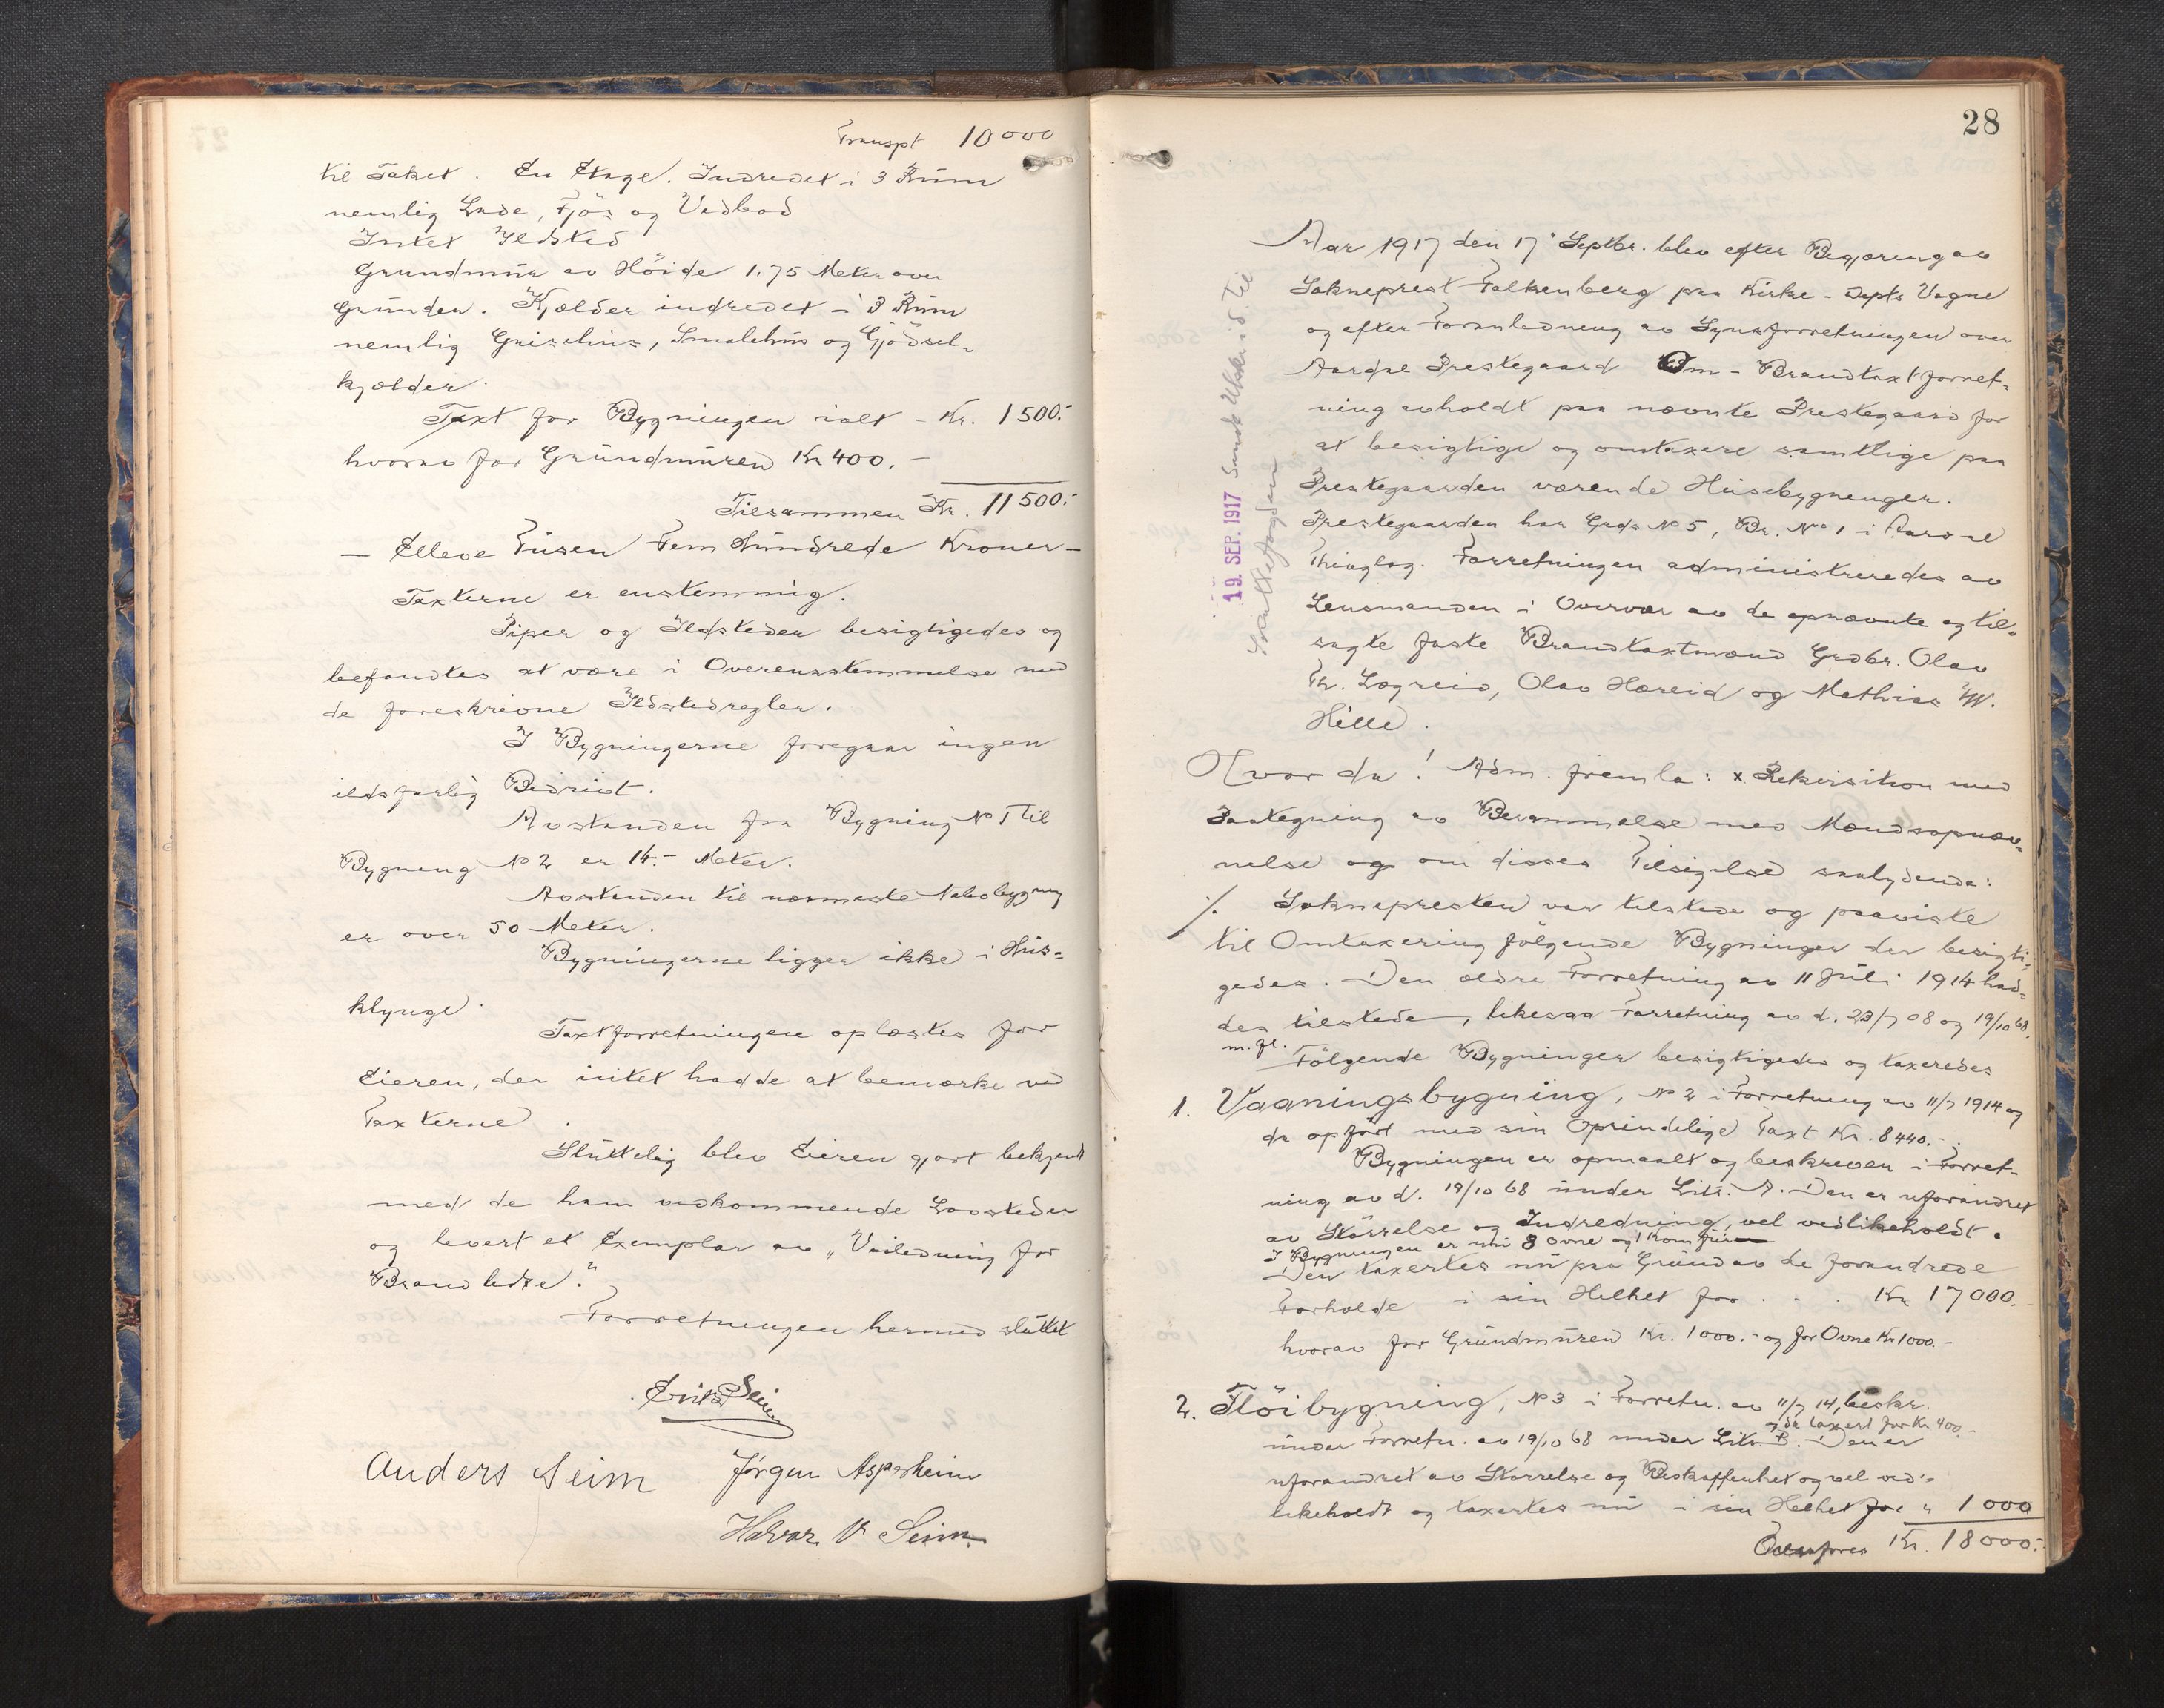 Transpt 10000
til Taket. En Etage. Indredet i 3 Rum
nemlig Lade, Fjös og Vedbod
Intet Ildsted
Grundmur av Höide 1.75 Meter over
Grunden. Kjælder indredet i 3 Rum
nemlig Grisehus, Smalehus og Gjödsel-
kjælder.
Taxt for Bygningen ialt - Kr. 1500.-
hvorav for Grundmuren Kr 400.-
Tilsammen Kr. 11500.-
- Elleve Tusen Fem Hundrede Kroner -
Taxterne er enstemmig.
Piper og Ildsteder besigtigedes og
befandtes at være i Overensstemmelse med
de foreskrivne Ildstedregler.
I Bygningerne foregaar ingen
ildsfarlig Bedrivt.
Avstanden fra Bygning No 1 til
Bygning No 2 er 14.- Meter.
Avstanden til nærmeste Nabobygning
er over 50 Meter.
Bygningerne ligger ikke i Hus-
klynge.
Taxtforretningen oplæstes for
Eieren, der intet hadde at bemærke ved
Taxterne.
Sluttelig blev Eieren gjort bekjendt
med de ham vedkommende Lovsteder
og levert et Exemplar av "Veiledning for
Brandledre."
Forretningen hermed sluttet
Erik Seim
Anders Seim Jørgen Asperheim
Halvar V Seim.
28
19. SEP. 1917 Sendt Utskr. id. til
Aar 1917 den 17' Septbr. blev efter Begjæring av
Sokneprest Falkenberg paa Kirke-Depts Vegne
og efter Foranledning av Synsforretningen over
Aardal Prestegaard Om-Brandtaxtforret-
ning avholdt paa nævnte Prestegaard for
at besigtige og omtaxere samtlige paa
Prestegaarden værende Husebygninger.
Prestegaarden har Grds No 5, Br. No 1 i Aardal
Thinglag. Forretningen administreredes av
Lensmanden i Overvær av de opnævnte og til-
sagte faste Brandtaxtmænd Grdbr. Olav
Th. Lægreid, Olav Hæreid og Mathias W.
Hille.
Hvor da! Adm. fremla: x Rekvisition med
Paategning av Berammelse med Mændsopnæv-
nelse og om disses Tilsigelse saalydende:
./. Soknepresten var tilstede og paaviste
til Omtaxering fölgende Bygninger der besigti-
gedes. Den ældre Forretning av 11 Juli 1914 had-
des tilstede, likesaa Forretning av d. 23/7 08 og 19/10 68.
m. fl. Fölgende Bygninger besigtigedes og taxeredes
1. Vaaningsbygning, No 2 i Forretning av 11/7 1914 og
da opfört med sin Oprindelige Taxt Kr. 8440.-.
Bygningen er opmaalt og beskreven i Forret-
ning av d. 19/10 68 under Litr. A. Den er uforandret
av Störrelse og Indredning, vel vedlikeholdt.
I Bygningen er nu 8 Ovne og 1 Komfur
Den taxertes nu paa Grund av de forandrede
Forholde i sin Helhet for . . . Kr 17000.-
hvorav for Grundmuren Kr. 1000.- og for Ovne Kr 1000.-
2. Flöibygning, No 3 i Forretn. av 11/7 14, beskr.
og da taxert for Kr 400.-
under Forretn. av 19/10 68 under Litr. B. Den er
uforandret av Störrelse og Beskaffenhet og vel ved-
likeholdt og taxertes nu i sin Helhet for " 1000
Overföres Kr. 18000.-